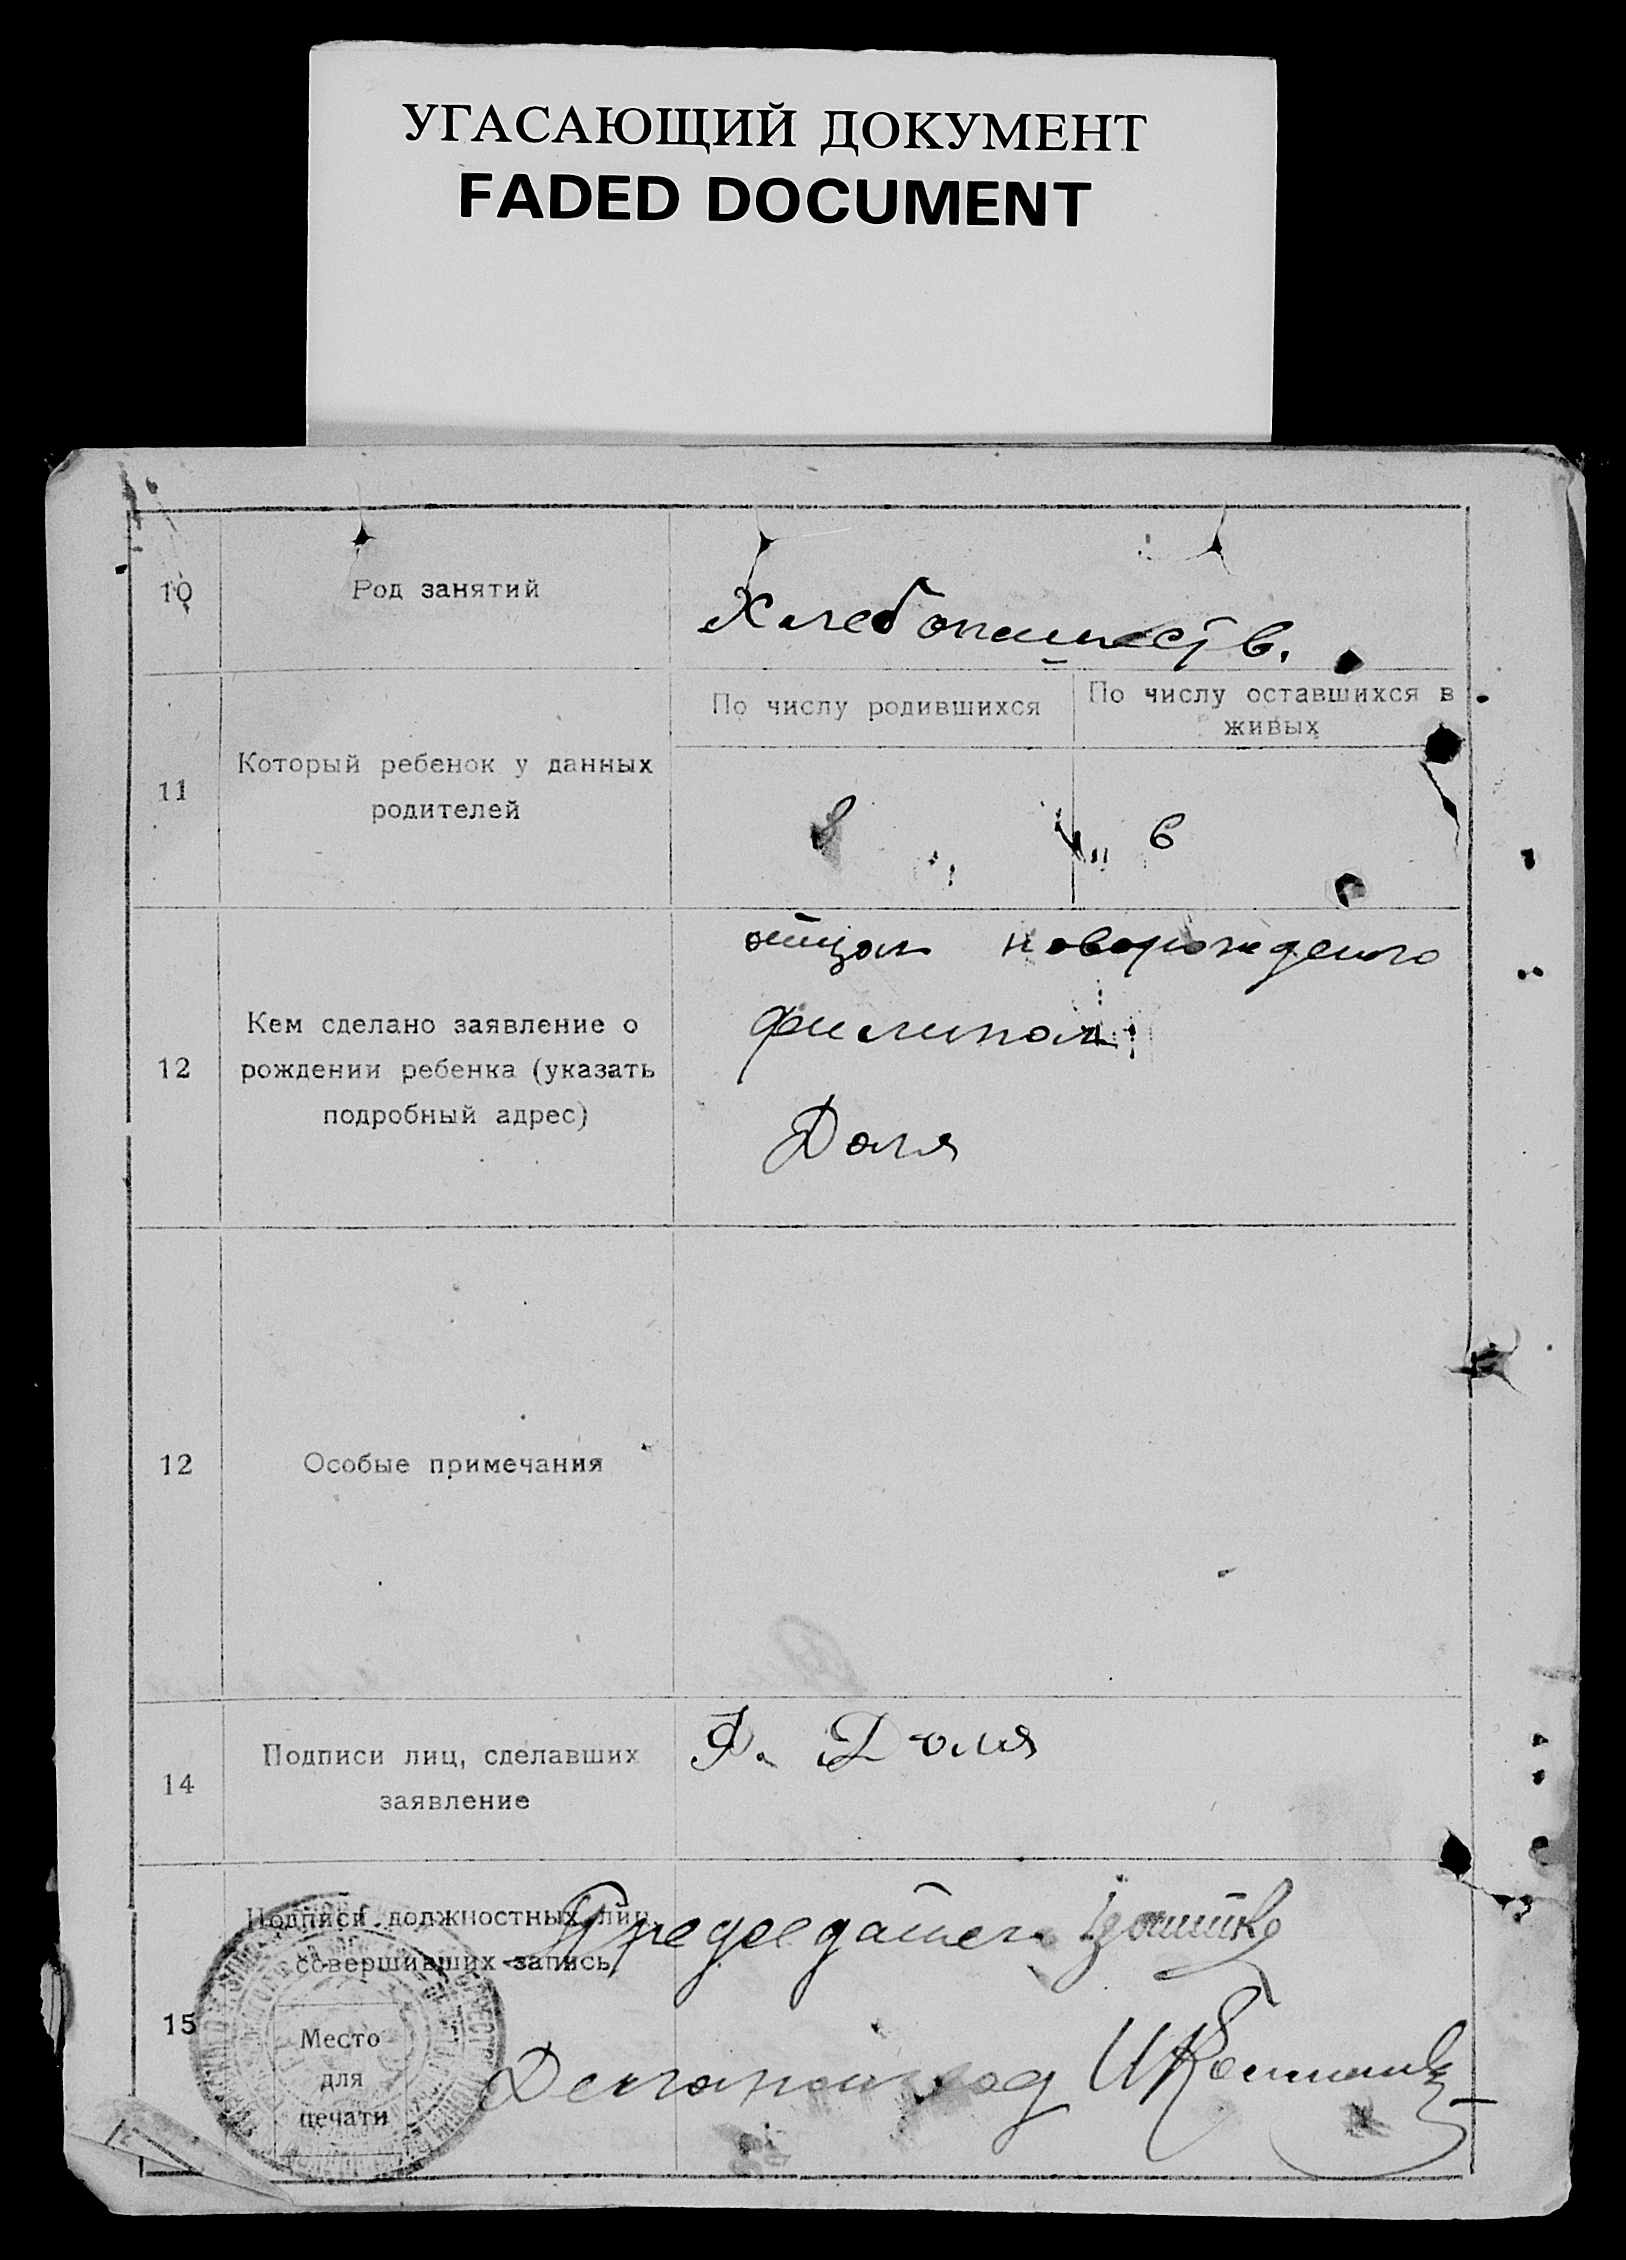 УГАСАЮЩИЙ ДОКУМЕНТ
FADED DOCUMENT
10
Род занятий
Хлебопашеств.
11
Который ребенок у данных
родителей
По числу родившихся
По числу оставшихся в
живых
8
6
12
Кем сделано заявление о
рождении ребенка (указать
подробный адрес)
отцом новорожденого
Филипом
Доля
12
Особые примечания
14
Подписи лиц, сделавших
заявление
Ф. Доля
15
Подписи должностных лиц,
совершивших запись
Место
для
печати
Председатель
Делопроизвод